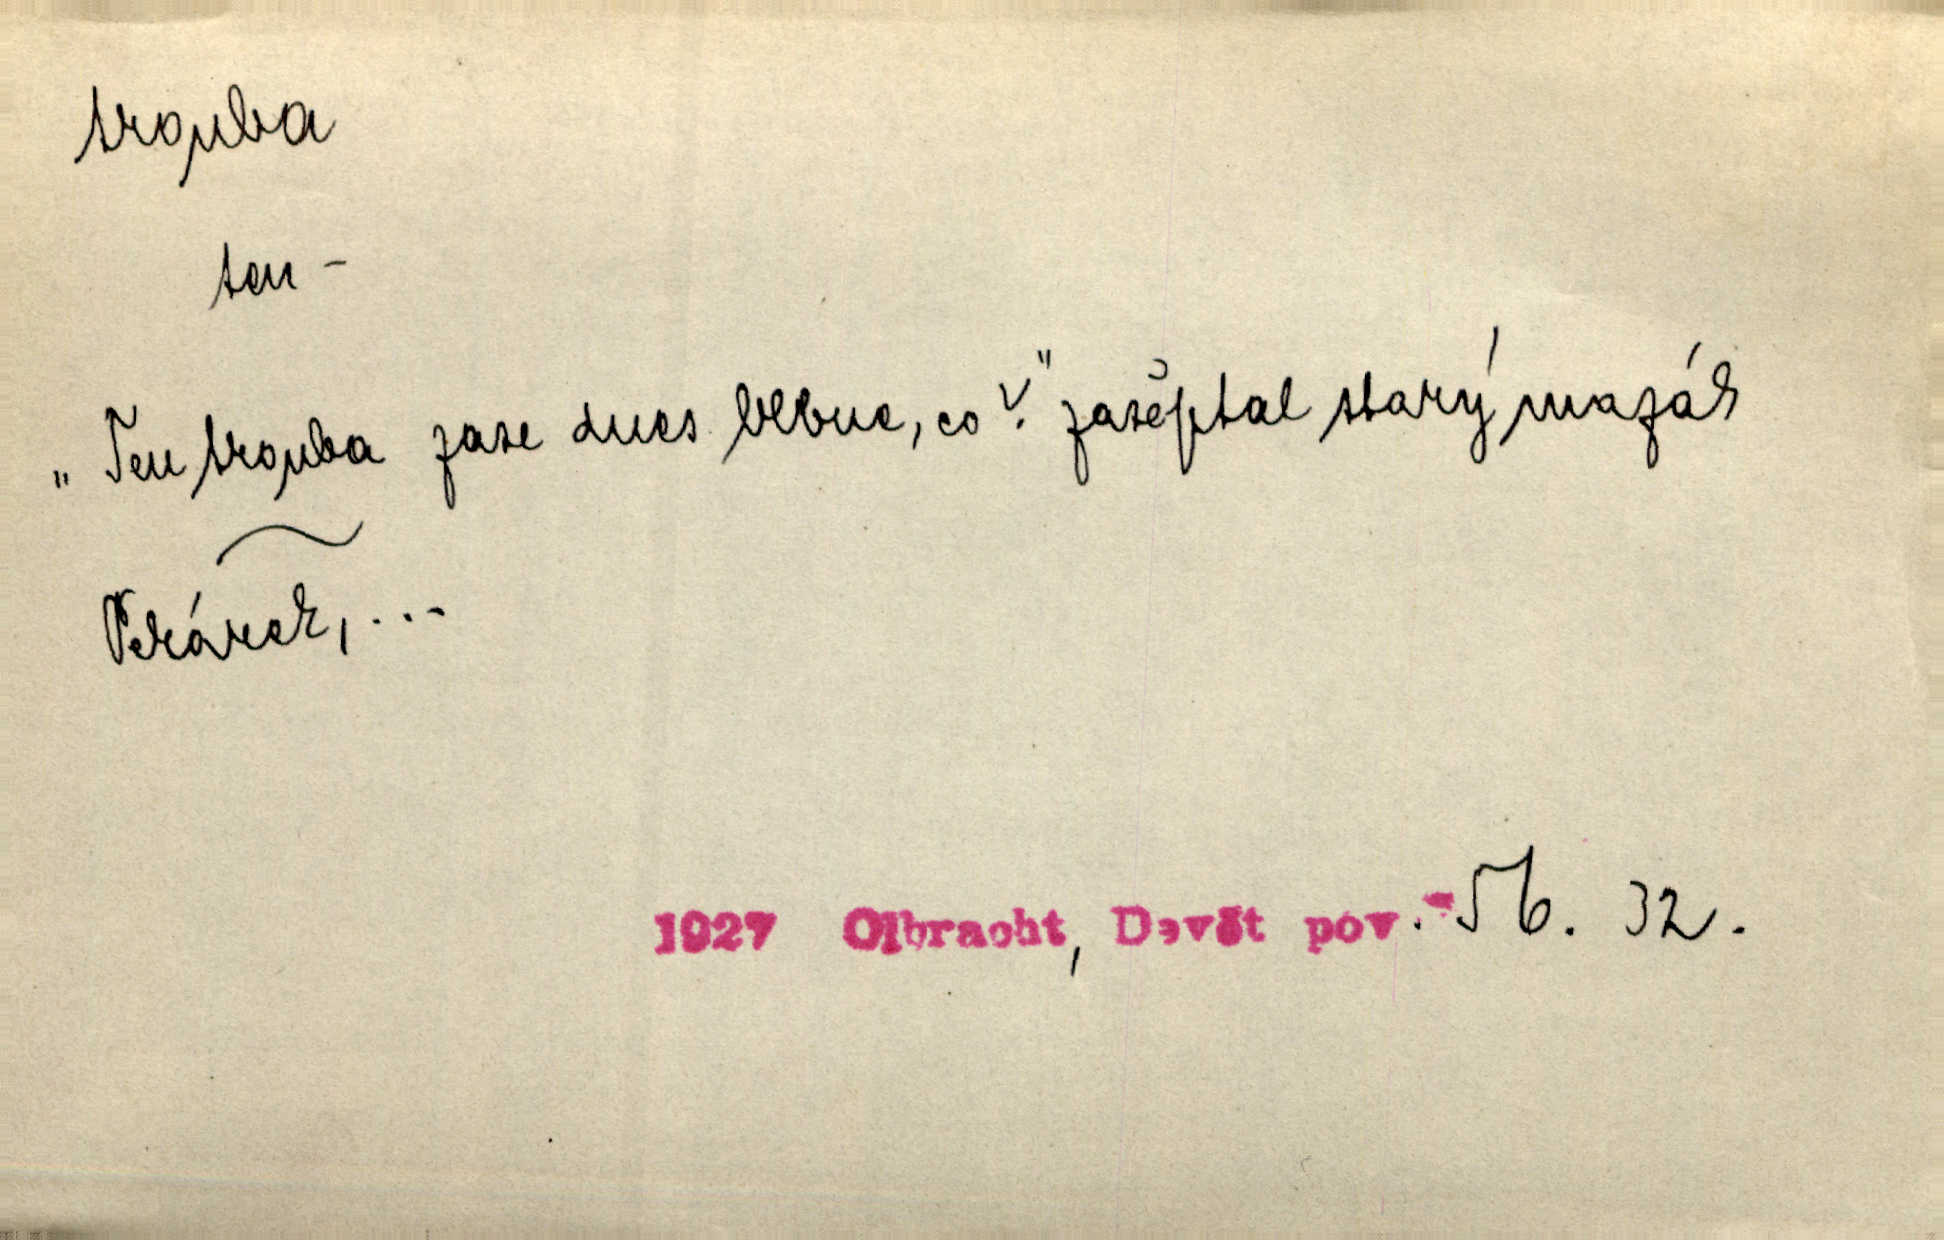 trouba
ten –
„Ten trouba zase dnes blbne, co?" zašeptal starý mazák
Pekárek, ...
1927 Olbracht, Devět pov. 56. 32.